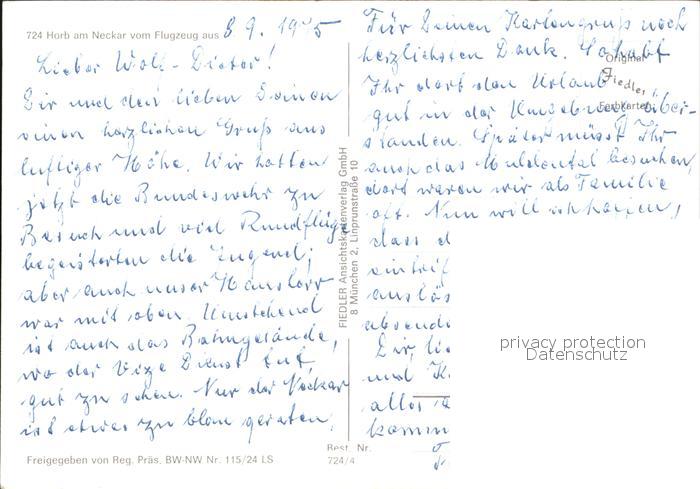 724 Horb am Neckar vom Flugzeug aus
Lieber Wolf-Dieter!
Dir und den lieben Deinen
einen herzlichen Gruß aus
luftiger Höhe. Wir hatten
jetzt die Bundeswehr zu
Besuch und viel Rundflüge
begeisterten die Jugend;
aber auch unser Hausherr
war mit oben. Umstehend
ist auch das Bahngelände,
wo der Dienst tut,
gut zu sehen. Nur der Neckar
ist etwas zu blau geraten.
Freigegeben von Reg. Präs. BW-NW Nr. 115/24 LS
FIEDLER Ansichtskartenverlag GmbH
8 München 2, Linprunstraße 10
Best. Nr.
724/4
Original
Fiedler
Farbkarten
Für Deinen Kartengruß noch
herzlichsten Dank. So habt
Ihr dort den Urlaub
gut in der Umgebung über-
standen. Später müsst Ihr
auch das Muldental besuchen,
dort waren wir als Familie
oft. Nun will ich hoffen,
dass d
eintrif
auslös
absende
Dir, lie
und
alles
komm
privacy protection
Datenschutz